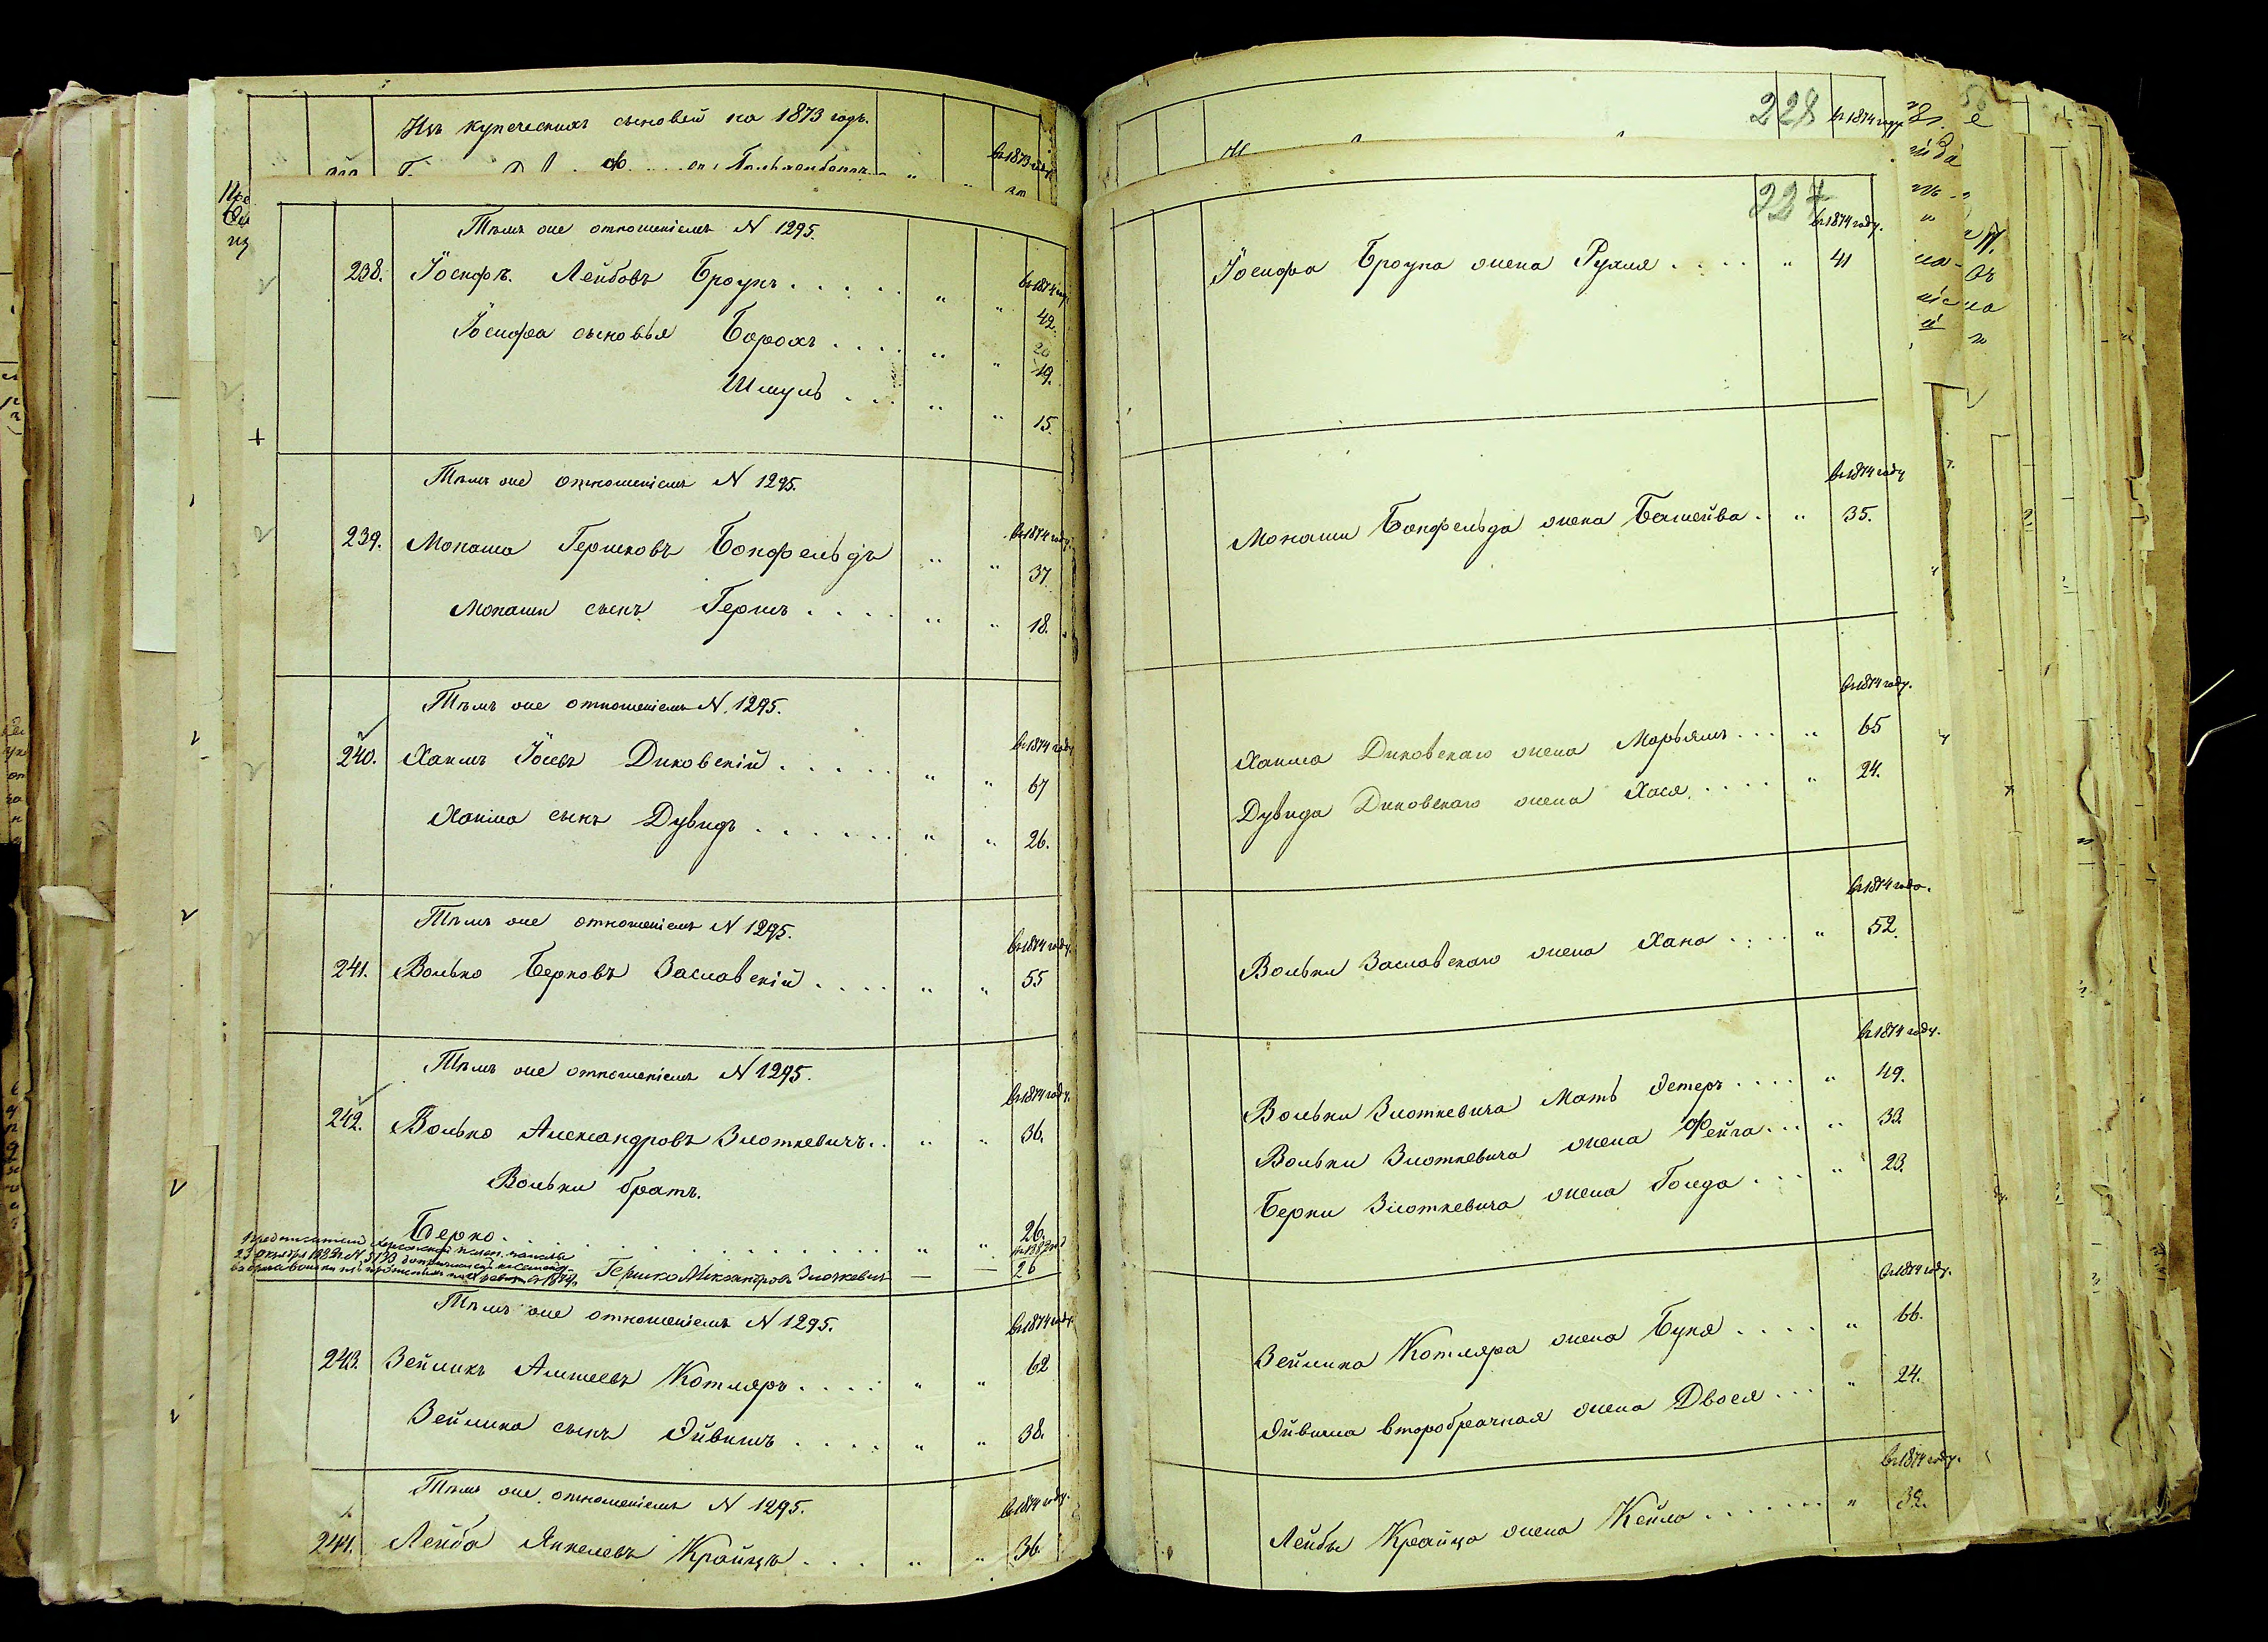 Изъ купеческихъ сыновей на 1873 годъ.
въ 1873 году
Тѣмъ же отношеніемъ N 1295.
238. Іосифъ Лейбовъ Броунъ . . . . . " " въ 1874 году 42.
Іосифа сыновья Борохъ . . . . " " 20 19.
Шмуль . . . " " 15.
Тѣмъ же отношеніемъ N 1295.
въ 1874 году.
239. Монаша Гершковъ Бонфельдъ " " 37.
Монаши сынъ Гершъ . . . . " " 18.
Тѣмъ же отношеніемъ N. 1295.
въ 1874 году
240. Хаимъ Іосевъ Диковскій . . . . . . " " 67
Хаима сынъ Дувидъ . . . . . . . " " 26.
Тѣмъ же отношеніемъ N 1295.
въ 1874 году.
241. Волько Берковъ Заславскій . . . . " " 55
Тѣмъ же отношеніемъ N 1295.
въ 1874 году.
242. Волько Александровъ Злоткевичъ . . " " 36.
Вольки братъ.
Берко . . . . . . . . . . . " " 26.
23 Октября N
Гершко Александровъ Злоткевичъ — — 26
Тѣмъ же отношеніемъ N 1295.
въ 1874 году.
243. Зейликъ Алтеевъ Котляръ . . . . " " 62
Зейлика сынъ Эйвишъ . . . . " " 38.
Тѣмъ же отношеніемъ N 1295.
въ 1874 году.
244. Лейба Янкелевъ Крайцъ . . . " " 36.
228 въ 1874 году
227
въ 1874 году.
Іосифа Броуна жена Рухля . . . . " 41
въ 1874 году
Монаши Бонфельда жена Башейва . " 35.
въ 1874 году.
Хаима Диковскаго жена Марьямъ . . . " 65
Дувида Диковскаго жена Хася . . . . . " 24.
въ 1874 году.
Вольки Заславскаго жена Хана . . . . " 52.
въ 1874 году.
Вольки Злоткевича Мать Эстеръ . . . . " 49.
Вольки Злоткевича жена Фейга . . . " 33.
Берки Злоткевича жена Голда . . . . " 23.
въ 1874 году.
Зейлика Котляра жена Буня . . . . " 66.
Эйвиша второбрачная жена Двося . . . " 24.
въ 1874 году.
Лейбы Крайца жена Кейла . . . . . . . " 32.